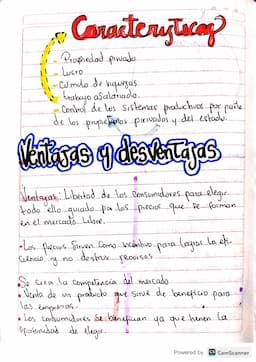 Características
- Propiedad privada
- Lucro
- Cúmulo de riquezas
- trabajo asalariado.
- Control de los sistemas productivos por parte
de los propietarios privados y del estado.
Ventajas y desventajas
Ventajas: Libertad de los consumidores para elegir
todo ello guiado por los precios que se forman
en el mercado libre.
• Los precios sirven como incentivo para lograr la efi-
ciencia y no destruir recursos
Se crea la competencia del mercado
• Venta de un producto que sirve de beneficio para
las empresas.
• Los consumidores se benefician ya que tienen la
oportunidad de elegir.
Powered by CS CamScanner